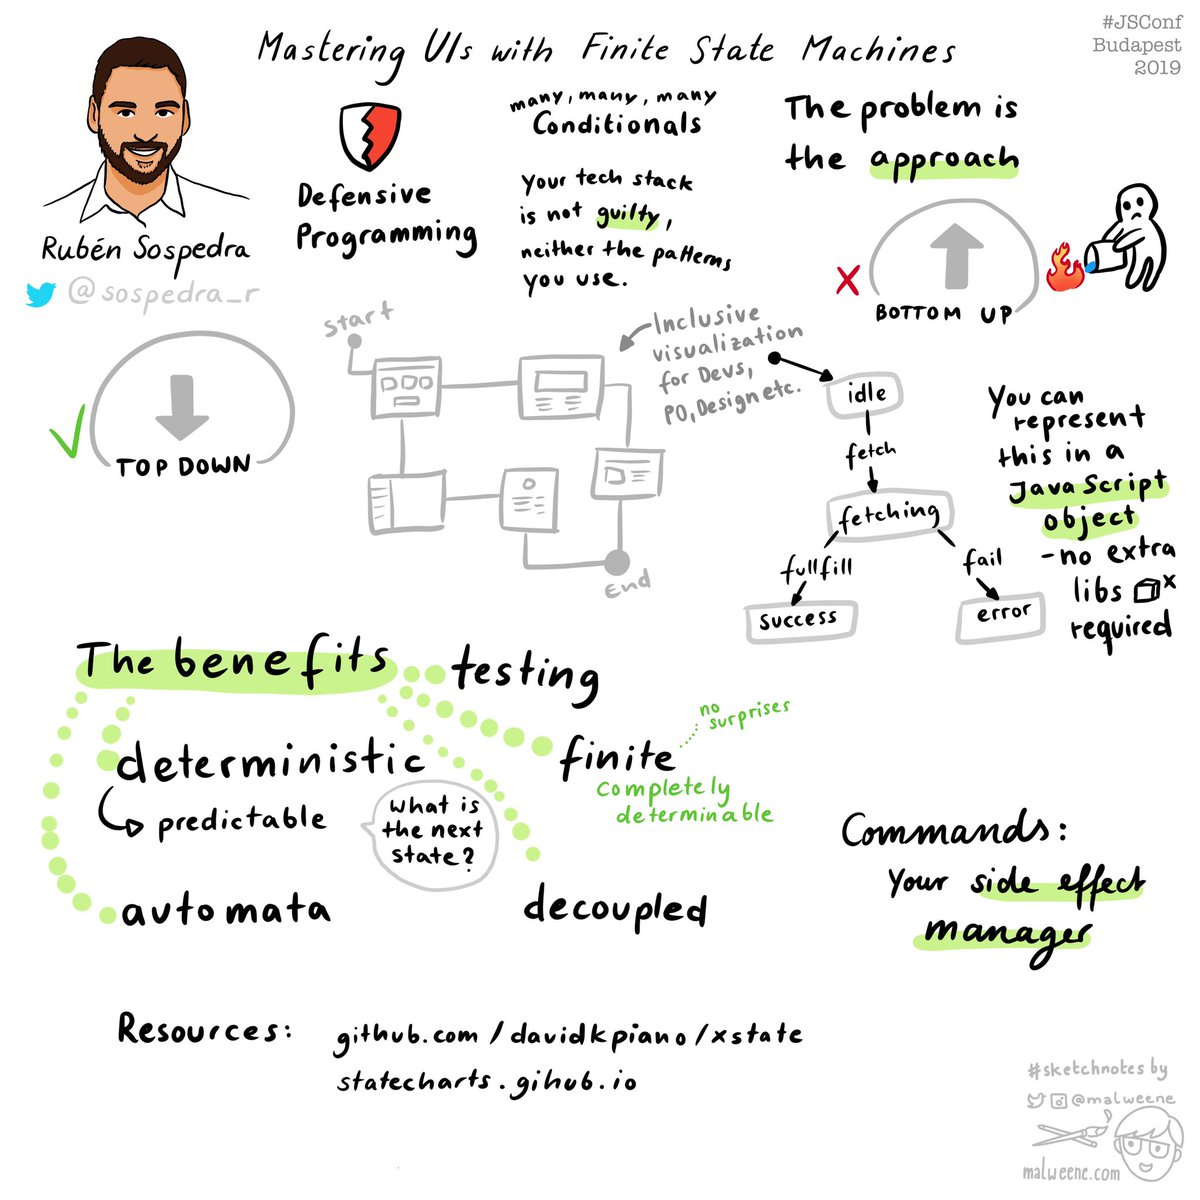 Mastering UIs with Finite State Machines
#JSConf
Budapest
2019
Rubén Sospedra
@sospedra_r
Defensive
Programming
many, many, many
Conditionals
Your tech stack
is not guilty,
neither the patterns
you use.
The problem is
the approach
BOTTOM UP
TOP DOWN
Start
End
Inclusive
visualization
for Devs,
PO, Design etc.
idle
fetch
fetching
fullfill
fail
success
error
You can
represent
this in a
JavaScript
object
- no extra
libs
required
The benefits
testing
deterministic
predictable
What is
the next
state?
automata
finite
no
surprises
completely
determinable
decoupled
Commands:
Your side effect
manager
Resources:
github.com/davidkpiano/xstate
statecharts.gihub.io
#sketchnotes by
@malweene
malweene.com